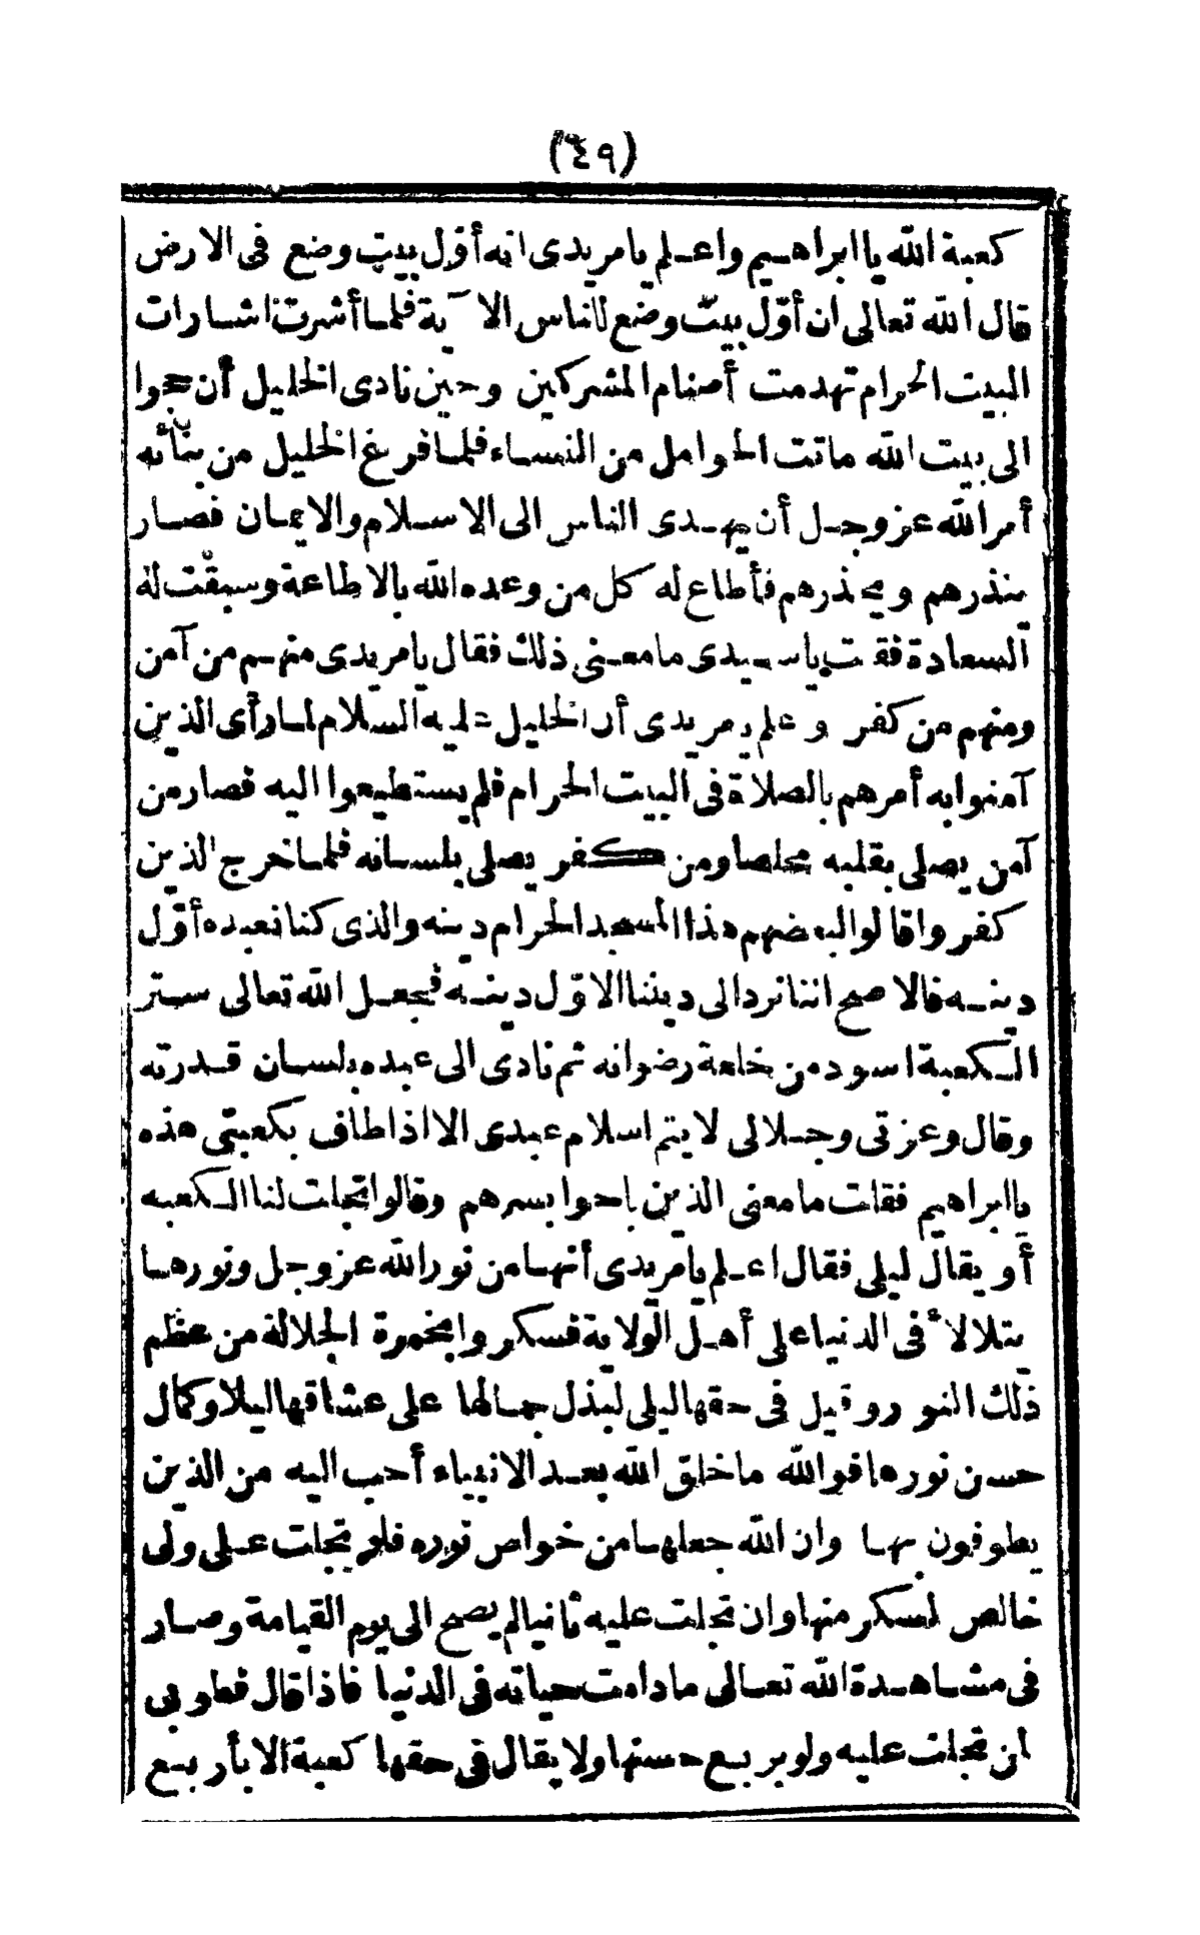 (٤٩)
كعبة الله يا ابراهيم واعلم يا مريدى انه أول بيت وضع فى الارض
قال الله تعالى ان أوّل بيت وضع للناس الآية فلما أشرقت اشارات
البيت الحرام تهدمت أصنام المشركين وحين نادى الخليل أن حجوا
الى بيت الله ماتت الحوامل من النساء فلما فرغ الخليل من بنائه
أمر الله عز وجل أن يهدى الناس الى الاسلام والايمان فصار
ينذرهم ويحذرهم فأطاع له كل من وعده الله بالاطاعة وسبقت له
السعادة فقلت يا سيدى ما معنى ذلك فقال يا مريدى منهم من آمن
ومنهم من كفر واعلم يا مريدى أن الخليل عليه السلام لما رأى الذين
آمنوا به أمرهم بالصلاة فى البيت الحرام فلم يستطيعوا اليه فصار من
آمن يصلى بقلبه مخلصا ومن كفر يصلى بلسانه فلما خرج الذين
كفروا قالوا لبعضهم هذا المسجد الحرام دينه والذى كنا نعبده أوّل
دينه فالاصح اننا نرد الى ديننا الاوّل دينه فجعل الله تعالى ستر
الكعبة اسود من خلعة رضوانه ثم نادى الى عبده بلسان قدرته
وقال وعزتى وجلالى لا يتم اسلام عبدى الا اذا طاف بكعبتى هذه
يا ابراهيم فقلت ما معنى الذين باحوا بسرهم وقالوا تجلت لنا الكعبه
أو يقال ليلى فقال اعلم يا مريدى أنها من نور الله عز وجل ونورها
يتلالأ فى الدنيا على أهل الولاية فسكروا بخمرة الجلالة من عظم
ذلك النور وقيل فى حقها ليلى لبذل جمالها على عشاقها ليلا وكمال
حسن نورها فوالله ما خلق الله بعد الانبياء أحب اليه من الذين
يطوفون بها وان الله جعلها من خواص نوره فلو تجلت على ولى
خالص لسكر منها وان تجلت عليه ثانيا لم يصح الى يوم القيامة وصار
فى مشاهدة الله تعالى ما دامت حياته فى الدنيا فاذا قال فطوبى
لمن تجلت عليه ولو بربع حسنها ولا يقال فى حقها كعبة الا بأربع